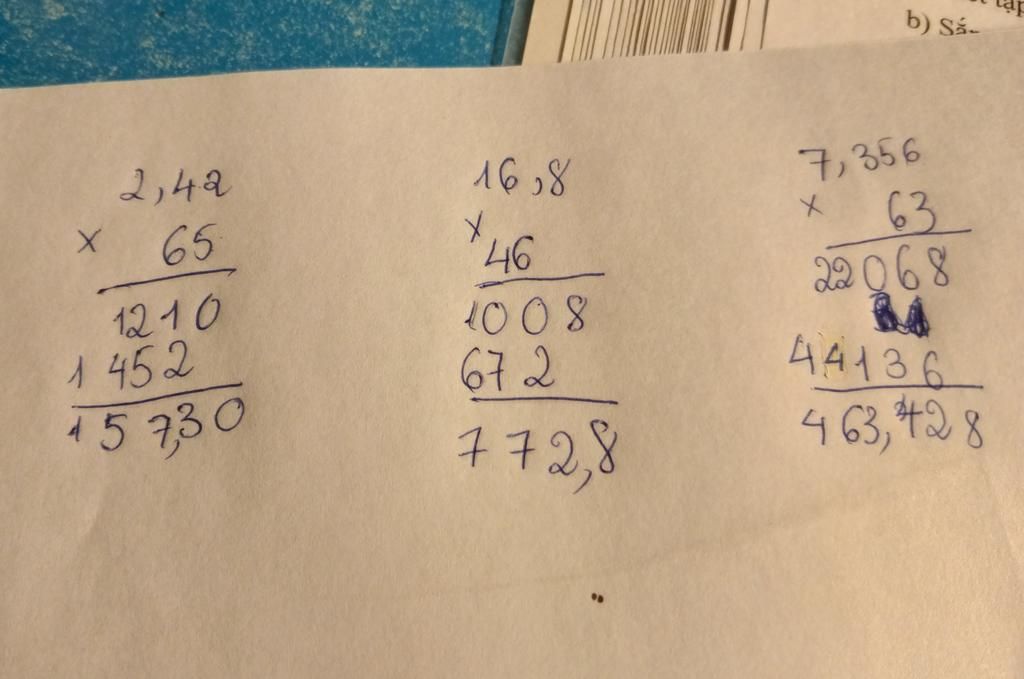 b) Sắ
2,42
× 65
1210
1452
157,30
16,8
×
46
1008
672
772,8
7,356
× 63
22068
44136
463,428